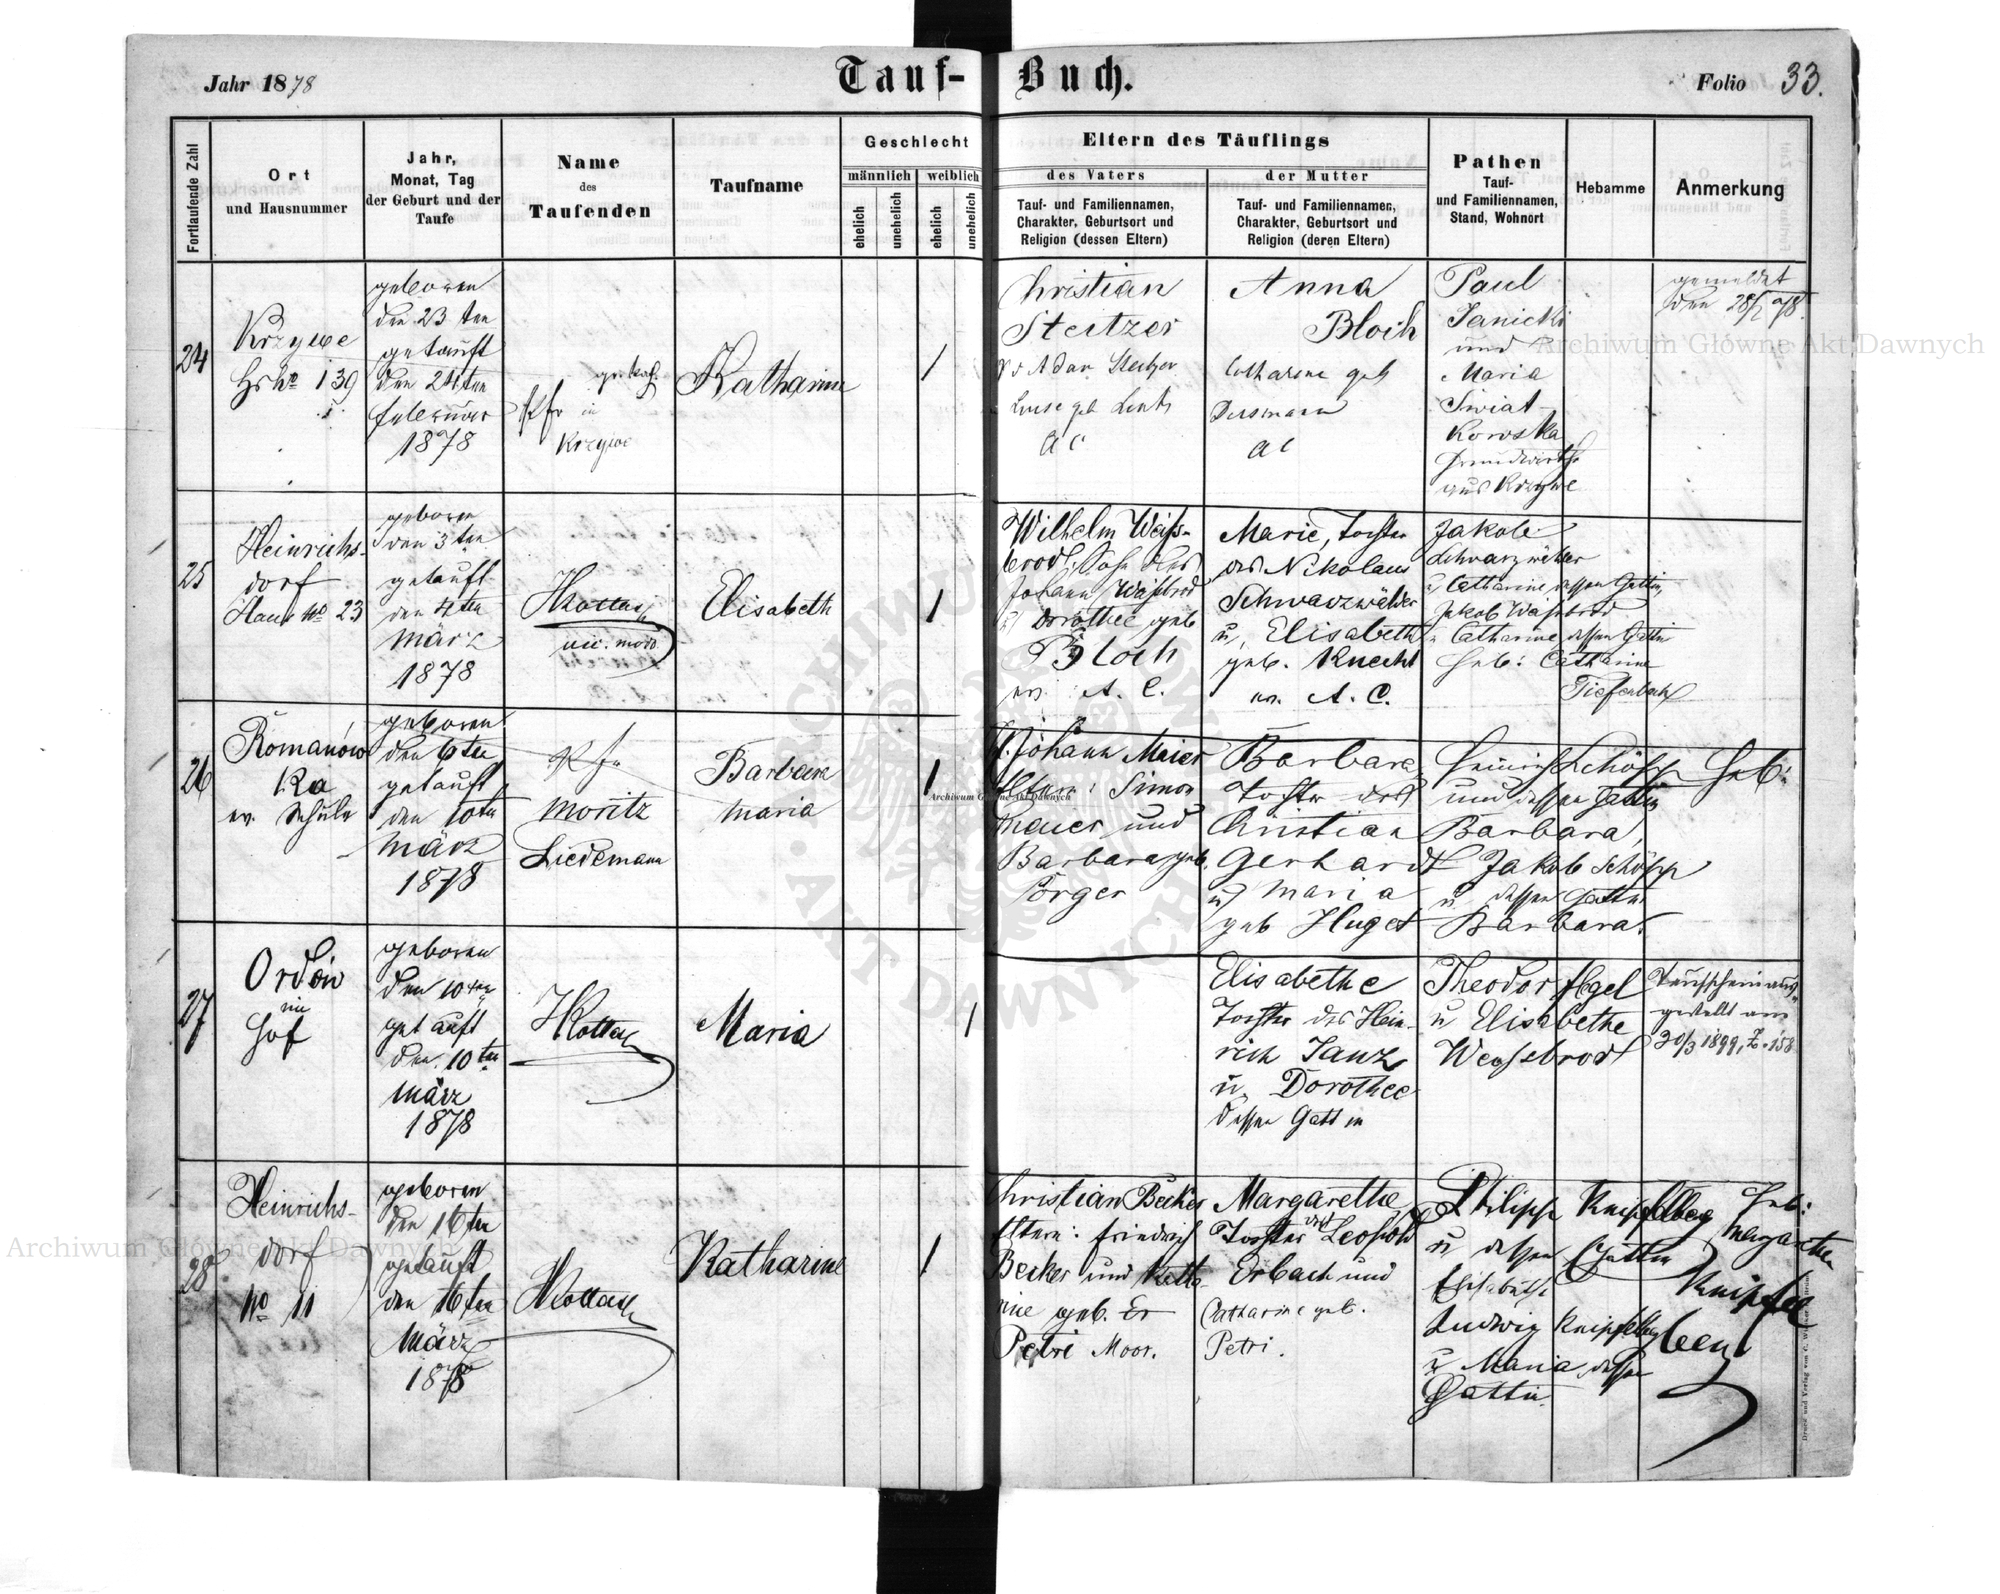 Jahr 1878
Tauf-Buch.
Folio 33.
Fortlaufende Zahl
Ort
und Hausnummer
Jahr,
Monat, Tag
der Geburt und der
Taufe
Name
des
Taufenden
Taufname
Geschlecht
männlich
weiblich
ehelich
unehelich
ehelich
unehelich
Eltern des Täuflings
des Vaters
Tauf- und Familiennamen,
Charakter, Geburtsort und
Religion (dessen Eltern)
der Mutter
Tauf- und Familiennamen,
Charakter, Geburtsort und
Religion (deren Eltern)
Pathen
Tauf-
und Familiennamen,
Stand, Wohnort
Hebamme
Anmerkung
24
Krzywe
Hs No 139
geboren
den 23ten
getauft
den 24ten
Februar
1878
in
Krzywe
Katharine
1
Christian
Steitzer
Adam Steitzer
geb
A C
Anna
Bloch
Catharine geb
A C
Paul
Janicki
und
Maria
Swiat-
kowska
Grundwirthe
aus Krzywe
gemeldet
den 28/2 78.
25
Heinrichs-
dorf
Haus No 23
geboren
den 3ten
getauft
den 4ten
März
1878
HKottasch
Elisabeth
1
Wilhelm Weiss-
brod, Sohn des
Johann Weissbrod
u Dorothee geb
Bloch
ev. A. C.
Marie, Tochter
des Nikolaus
Schwarzwälder
u. Elisabeth
geb. Knecht
ev. A. C.
Jakob
Schwarzwälder
u Catharine dessen Gattin,
Jakob Weissbrod
u Catharine dessen Gattin
Heb: Catharine
Tiefenbach
26
Romanów
ka
ev. Schule
geboren
den 6ten
getauft
den 10ten
März
1878
Pfr
Moritz
Liedemann
Barbara
Maria
1
Johann Maier
Eltern: Simon
Maier und
Barbara geb.
Porger
Barbara,
Tochter des
Christian
Gerhardt
u Maria
geb Huget
Heinrich Schöpp
und dessen Gattin
Barbara,
Jakob Schöpp
u dessen Gattin
Barbara.
Heb:
27
Ordów
im
Hof
geboren
den 10ten
getauft
den 10ten
März
1878
HKottasch
Maria
1
Elisabethe
Tochter des Hein-
rich Janz
u. Dorothee
dessen Gattin
Theodor
u Elisabethe
Weissbrod
Taufschein aus-
gestellt am
20/3 1899, Z. 158
28
Heinrichs-
dorf
No 11
geboren
den 16ten
getauft
den 16ten
März
1878
HKottasch
Katharine
1
Christian Becker
Eltern: Friedrich
Becker und Katha-
rine geb. Er
Petri Moor.
Margarethe
Tochter des Leopold
Erbach und
Catharine geb.
Petri.
Philipp Knipfelberg
u dessen Gattin
Elisabeth
Ludwig Knipfelberg
u Maria dessen
Gattin.
Heb:
Margarethe
Knipfel
berg
Archiwum Główne Akt Dawnych
Archiwum Główne Akt Dawnych
Archiwum Główne Akt Dawnych
ARCHIWUM GŁÓWNE AKT DAWNYCH